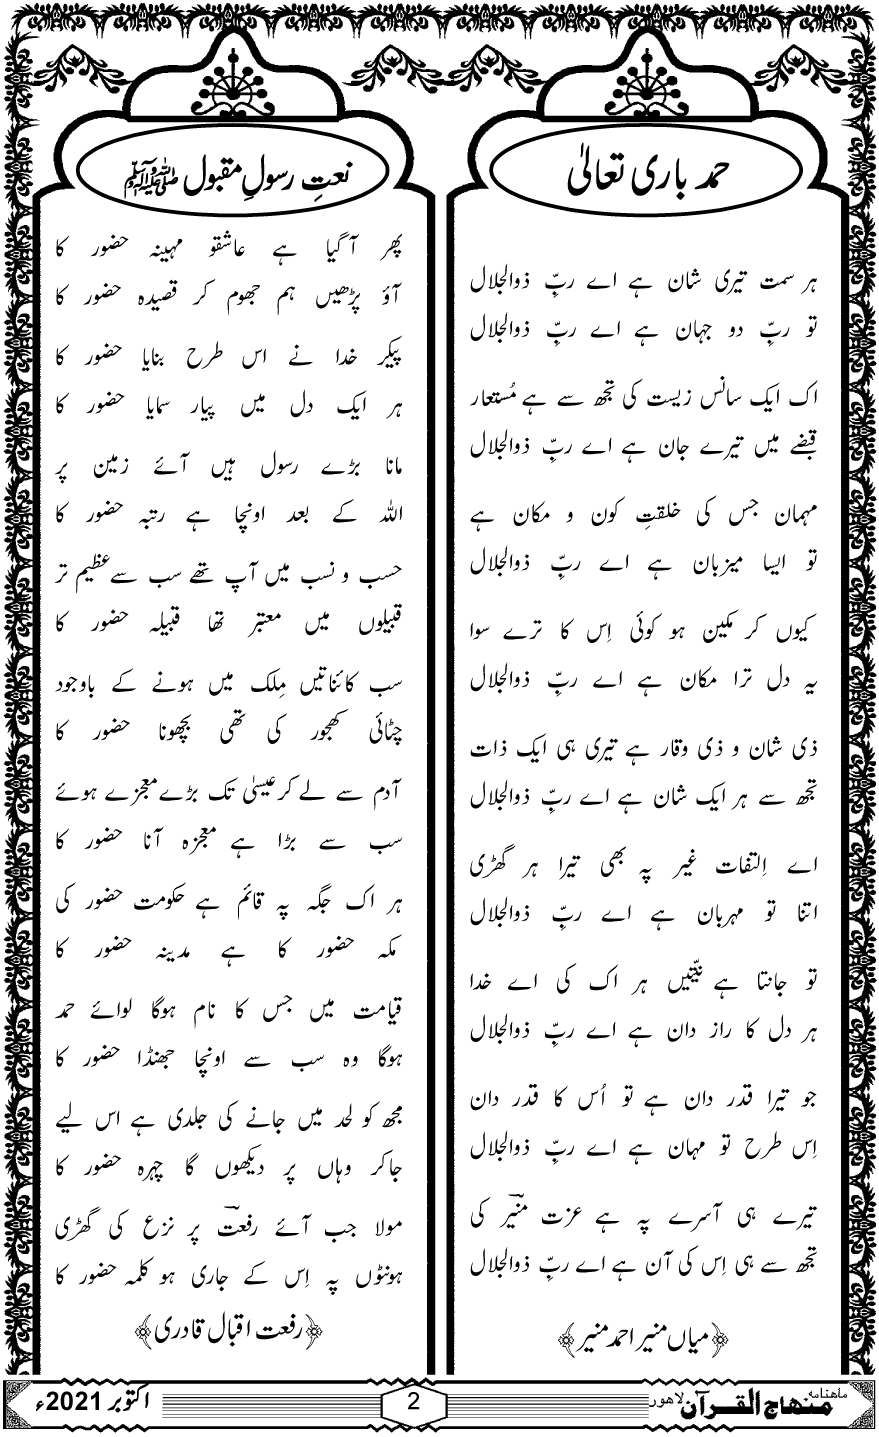 حمد باری تعالیٰ
ہر سمت تیری شان ہے اے ربِّ ذوالجلال
تو ربِّ دو جہان ہے اے ربِّ ذوالجلال
اک ایک سانس زیست کی تجھ سے ہے مُستعار
قبضے میں تیرے جان ہے اے ربِّ ذوالجلال
مہمان جس کی خلقتِ کون و مکان ہے
تو ایسا میزبان ہے اے ربِّ ذوالجلال
کیوں کر مکین ہو کوئی اِس کا ترے سوا
یہ دل ترا مکان ہے اے ربِّ ذوالجلال
ذی شان و ذی وقار ہے تیری ہی ایک ذات
تجھ سے ہر ایک شان ہے اے ربِّ ذوالجلال
اے اِلتفات غیر پہ بھی تیرا ہر گھڑی
اتنا تو مہربان ہے اے ربِّ ذوالجلال
تو جانتا ہے نیّتیں ہر اک کی اے خدا
ہر دل کا راز دان ہے اے ربِّ ذوالجلال
جو تیرا قدر دان ہے تو اُس کا قدر دان
اِس طرح تو مہان ہے اے ربِّ ذوالجلال
تیرے ہی آسرے پہ ہے عزت منیؔر کی
تجھ سے ہی اِس کی آن ہے اے ربِّ ذوالجلال
﴿میاں منیر احمد منیر﴾
نعتِ رسولِ مقبول ﷺ
پھر آگیا ہے عاشقو مہینہ حضور کا
آؤ پڑھیں ہم جھوم کر قصیدہ حضور کا
پیکر خدا نے اس طرح بنایا حضور کا
ہر ایک دل میں پیار سمایا حضور کا
مانا بڑے رسول ہیں آئے زمین پر
اللہ کے بعد اونچا ہے رتبہ حضور کا
حسب و نسب میں آپ تھے سب سے عظیم تر
قبیلوں میں معتبر تھا قبیلہ حضور کا
سب کائناتیں مِلک میں ہونے کے باوجود
چٹائی کھجور کی تھی بچھونا حضور کا
آدم سے لے کر عیسیٰ تک بڑے معجزے ہوئے
سب سے بڑا ہے معجزہ آنا حضور کا
ہر اک جگہ پہ قائم ہے حکومت حضور کی
مکہ حضور کا ہے مدینہ حضور کا
قیامت میں جس کا نام ہوگا لوائے حمد
ہوگا وہ سب سے اونچا جھنڈا حضور کا
مجھ کو لحد میں جانے کی جلدی ہے اس لیے
جاکر وہاں پر دیکھوں گا چہرہ حضور کا
مولا جب آئے رفعتؔ پر نزع کی گھڑی
ہونٹوں پہ اِس کے جاری ہو کلمہ حضور کا
﴿رفعت اقبال قادری﴾
ماہنامہ منہاج القرآن لاہور
2
اکتوبر 2021ء